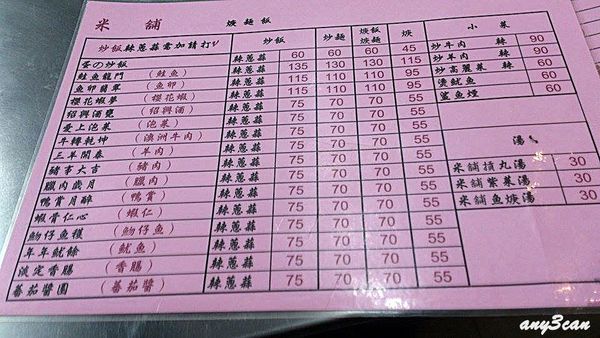 米舖 羹麵飯
炒飯辣蔥蒜需加請打V 炒飯 炒麵 羹飯 羹麵 羹 小菜
蛋の炒飯 辣蔥蒜 60 60 60 45 炒牛肉 辣 90
鮭魚龍門 (鮭魚) 辣蔥蒜 135 130 130 110 炒羊肉 辣 90
魚卵翡翠 (魚卵) 辣蔥蒜 115 110 110 95 炒高麗菜 辣 60
櫻花蝦夢 (櫻花蝦) 辣蔥蒜 115 110 110 95 燙魷魚 60
紹興酒甕 (紹興酒) 辣蔥蒜 75 70 70 55 鯊魚煙 60
愛上泡菜 (泡菜) 辣蔥蒜 75 70 70 55
牛轉乾坤 (澳洲牛肉) 辣蔥蒜 75 70 70 55 湯
三羊開泰 (羊肉) 辣蔥蒜 75 70 70 55 米舖摃丸湯 30
豬事大吉 (豬肉) 辣蔥蒜 75 70 70 55 米舖紫菜湯 30
臘肉歲月 (臘肉) 辣蔥蒜 75 70 70 55 米舖魚羹湯 30
鴨賞月醉 (鴨賞) 辣蔥蒜 75 70 70 55
蝦骨仁心 (蝦仁) 辣蔥蒜 75 70 70 55
魩仔魚穫 (魩仔魚) 辣蔥蒜 75 70 70 55
年年魷餘 (魷魚) 辣蔥蒜 75 70 70 55
淡定香腸 (香腸) 辣蔥蒜 75 70 70 55
蕃茄醬園 (蕃茄醬) 辣蔥蒜 75 70 70 55
any3can